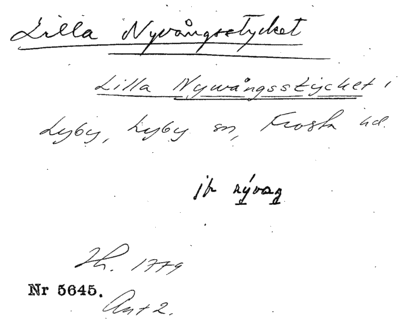 Lilla Nyvångsstycket
Lilla Nywångsstycket i
Lyby, Lyby sn, Frosta hd.
jfr nývaŋ
Sk. 1779
Nr 5645.
Akt 2.